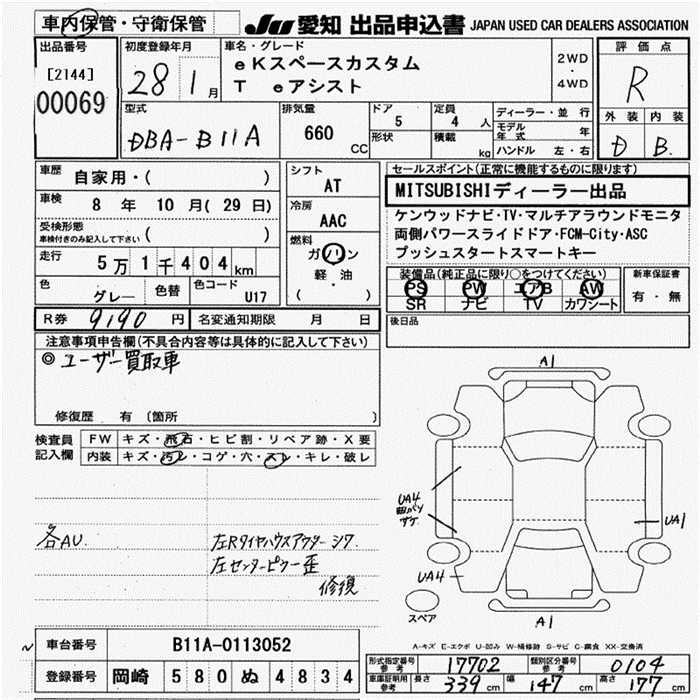 車内保管・守衛保管
JU 愛知 出品申込書 JAPAN USED CAR DEALERS ASSOCIATION
出品番号
[2144]
00069
初度登録年月
28 1月
車名・グレード
eKスペースカスタム
T eアシスト
2WD
・
4WD
評価点
R
外装 内装
D B
型式
DBA-B11A
排気量
660
CC
ドア
5
形状
定員
4 人
積載
kg
ディーラー・並行
モデル年式 年
ハンドル 左・右
車歴
自家用・( )
車検
8 年 10 月(29 日)
受検形態
車検付きのみ記入して下さい ( )
走行
5万1千404km
色
グレー
色替
色コード
U17
シフト
AT
冷房
AAC
燃料
ガソリン
軽・油
( )
セールスポイント(正常に機能するものに限ります)
MITSUBISHIディーラー出品
ケンウッドナビ・TV・マルチアラウンドモニタ
両側パワースライドドア・FCM-City・ASC
プッシュスタートスマートキー
装備品(純正品に限り○をつけてください)
PS PW エアB AW
SR ナビ TV カワシート
新車保証書
有・無
後日品
R券 9190 円
名変通知期限 月 日
注意事項申告欄(不具合内容等は具体的に記入して下さい)
◎ ユーザー買取車
修復歴 有 (箇所 )
検査員
記入欄
FW キズ・飛石・ヒビ割・リペア跡・X要
内装 キズ・汚レ・コゲ・穴・スレ・キレ・破レ
各AU.
左Rタイヤハウスアウター シワ
左センターピラー歪
修復
A1
UA4
UA1
UA4
A1
スペア
A-キズ E-エクボ U-凹み W-補修跡 S-サビ C-腐食 XX-交換済
車台番号 B11A-0113052
登録番号 岡崎 580 ぬ 4834
形式指定番号
参考
17702
類別区分番号
参考
0104
車庫証明用
参考
長さ 339 cm 幅 147 cm 高さ 177 cm